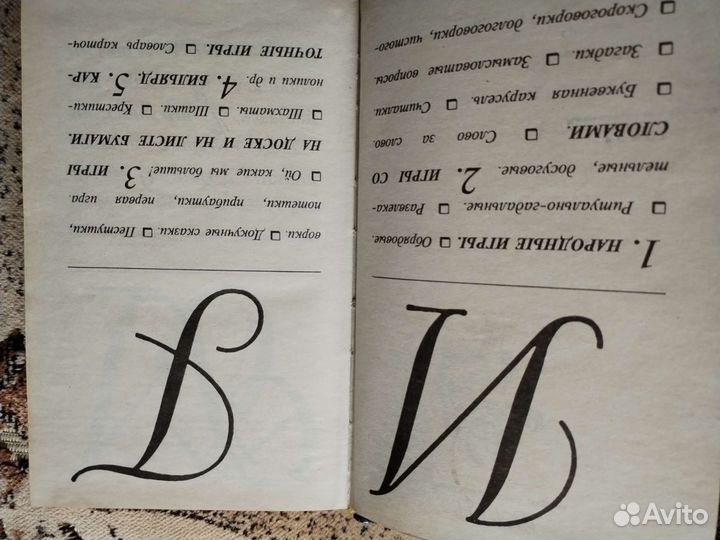 И
1. НАРОДНЫЕ ИГРЫ. ❑ Обрядовые.
❑ Ритуально-гадальные. ❑ Развлека-
тельные, досуговые. 2. ИГРЫ СО
СЛОВАМИ. ❑ Слово за слово.
❑ Буквенная карусель. ❑ Считалки.
❑ Загадки. ❑ Замысловатые вопросы.
❑ Скороговорки, долгоговорки, чистого-
ворки. ❑ Докучные сказки. ❑ Пестушки,
потешки, прибаутки, первая игра.
❑ Ой, какие мы большие! 3. ИГРЫ
НА ДОСКЕ И НА ЛИСТЕ БУМАГИ.
❑ Шахматы. ❑ Шашки. ❑ Крестики-
нолики и др. 4. БИЛЬЯРД. 5. КАР-
ТОЧНЫЕ ИГРЫ. ❑ Словарь карточ-
Avito